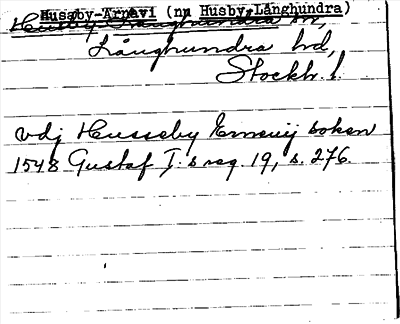 Husaby-Arnavi (nu Husby-Långhundra)
Husby Långhundra sn,
Långhundra hd,
Stockh. l.
vdj Husseby Ernevij soken
1548 Gustaf I:s reg. 19, s. 276.